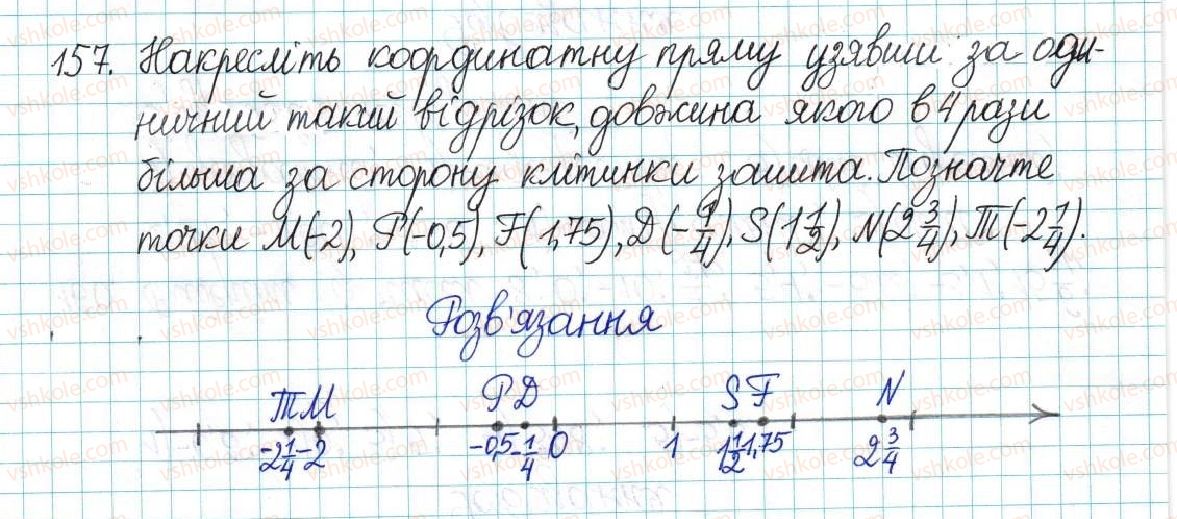 157. Накресліть координатну пряму узявши за оди-
ничний такий відрізок, довжина якого в 4 рази
більша за сторону клітинки зошита. Позначте
точки M(-2), P(-0,5), F(1,75), D(-1/4), S(1 1/2), N(2 3/4), T(-2 1/4).
Розв'язання
T M P D S F N
-2 1/4 -2 -0,5 -1/4 0 1 1 1/2 1,75 2 3/4
vshkole.com